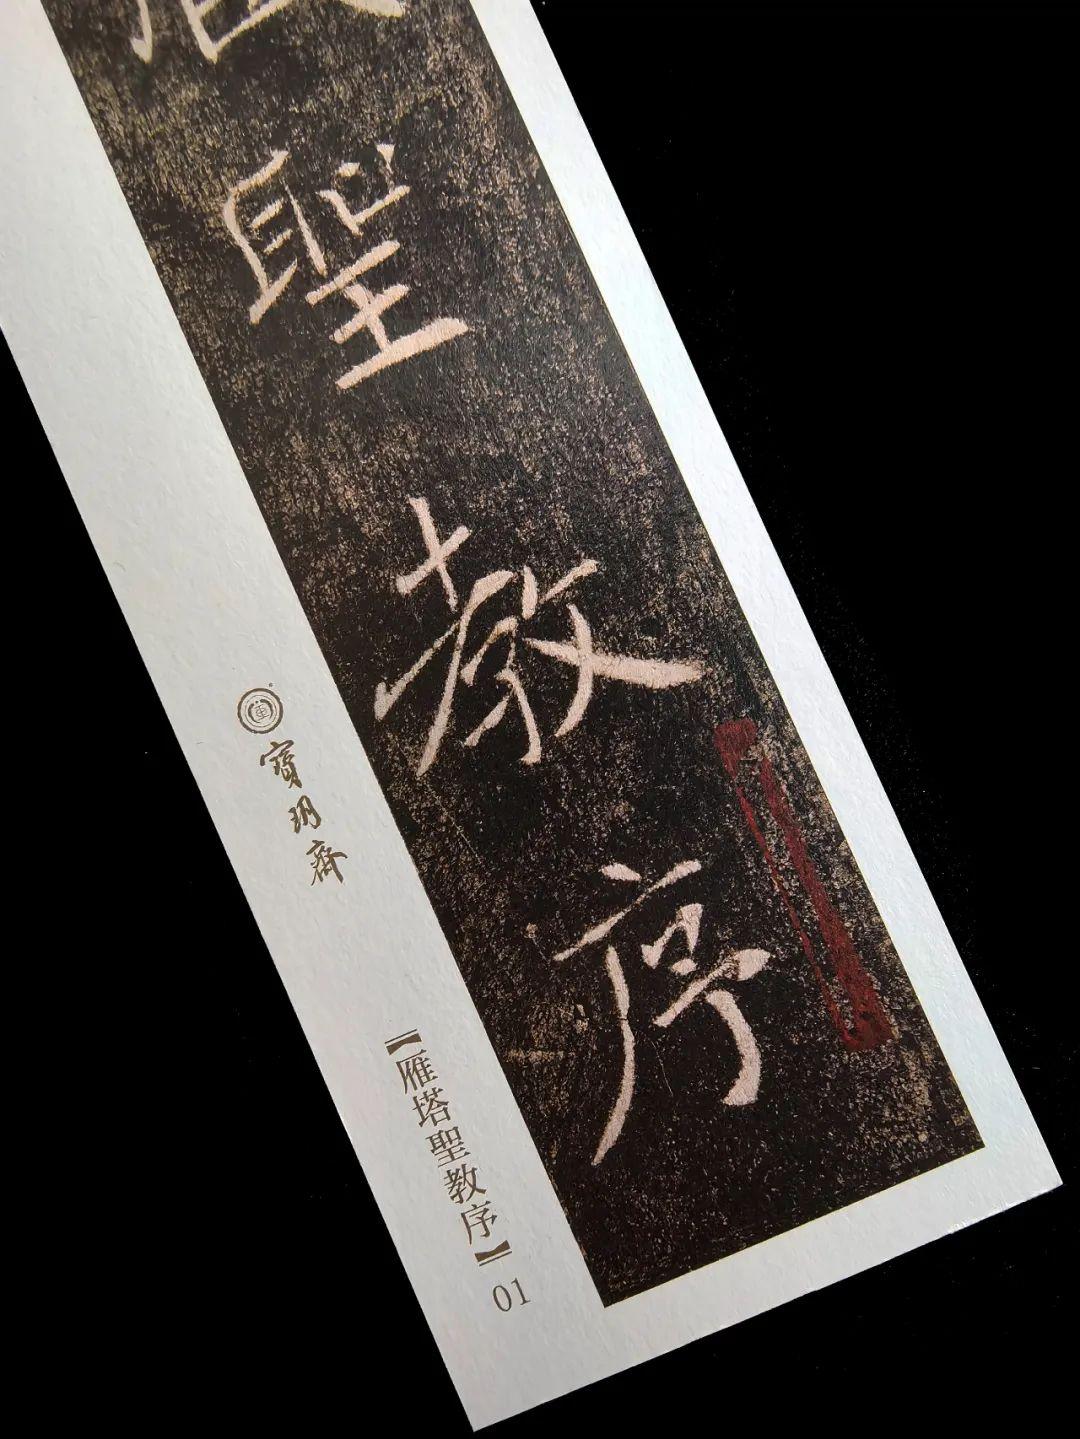 聖教序
寶玥齋
【雁塔聖教序】
01